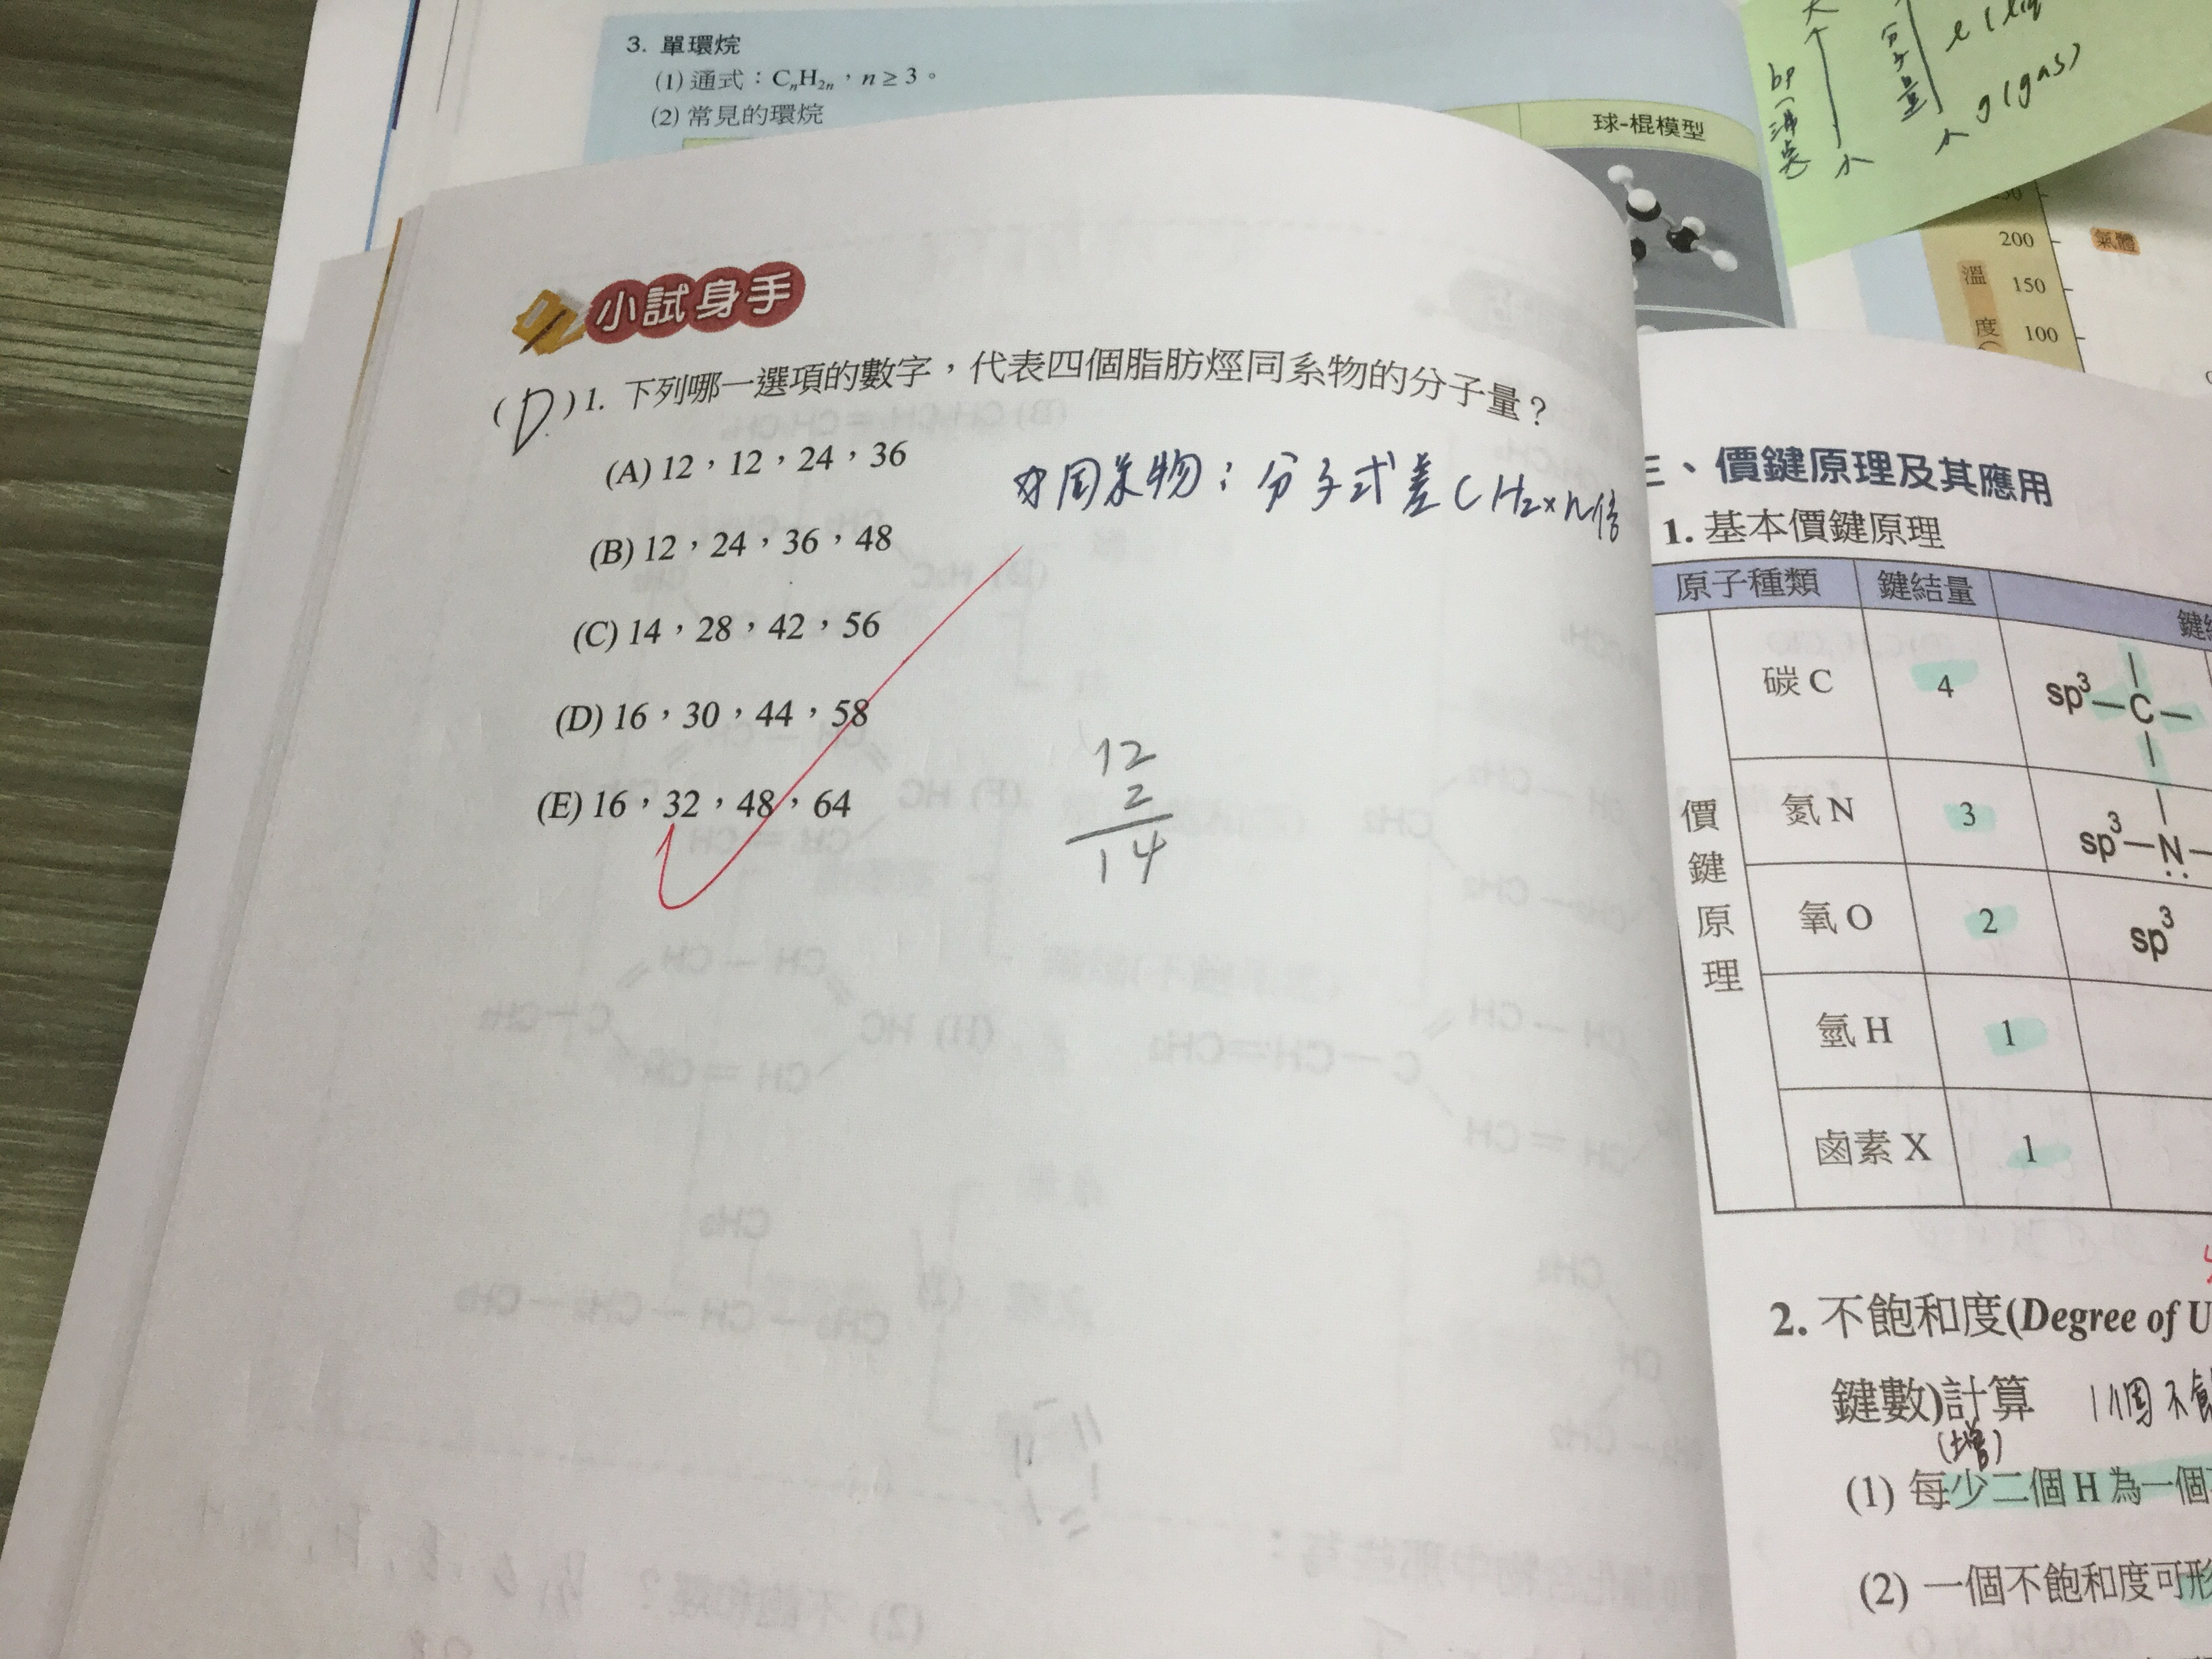 3. 單環烷
(1) 通式：CₙH₂ₙ，n ≥ 3。
(2) 常見的環烷
球-棍模型
大
bp
小
分子量
小
l (liq
g (gas)
200
150
100
溫
度
氣體
小試身手
(D) 1. 下列哪一選項的數字，代表四個脂肪烴同系物的分子量？
(A) 12，12，24，36
(B) 12，24，36，48
(C) 14，28，42，56
(D) 16，30，44，58
(E) 16，32，48，64
同系物：分子式差CH₂×n倍
12
2
14
三、價鍵原理及其應用
1. 基本價鍵原理
原子種類 鍵結量
價鍵原理
碳 C 4 sp³—C—
氮 N 3 sp³—N—
氧 O 2 sp³
氫 H 1
鹵素 X 1
2. 不飽和度(Degree of U
鍵數)計算 1個不飽
(增)
(1) 每少二個 H 為一個
(2) 一個不飽和度可形